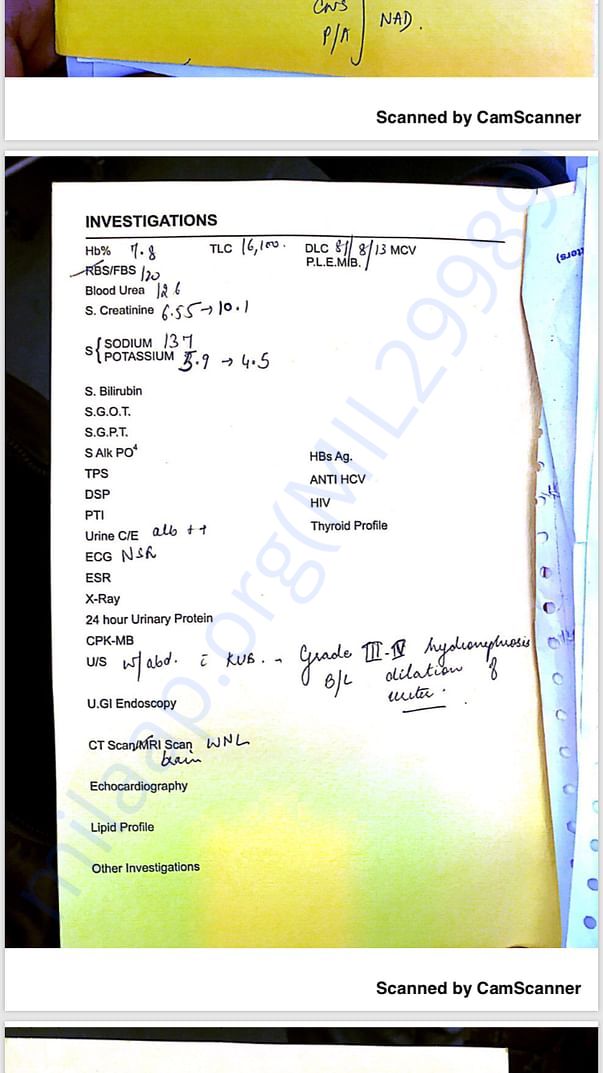 CNS
P/A NAD.
Scanned by CamScanner
INVESTIGATIONS
Hb% 7.8 TLC 16,100. DLC 81/8/13 MCV
P.L.E.M.B.
RBS/FBS 120
Blood Urea 126
S. Creatinine 6.55 → 10.1
S { SODIUM 137
POTASSIUM 5.9 → 4.5
S. Bilirubin
S.G.O.T.
S.G.P.T.
S Alk PO4 HBs Ag.
TPS ANTI HCV
DSP HIV
PTI Thyroid Profile
Urine C/E alb ++
ECG NSR
ESR
X-Ray
24 hour Urinary Protein
CPK-MB
U/S w/abd. c̄ KUB. - Grade III-IV hydronephrosis
B/L dilation of
ureter.
U.GI Endoscopy
CT Scan/MRI Scan WNL
brain
Echocardiography
Lipid Profile
Other Investigations
Scanned by CamScanner
milaap.org(MIL299989